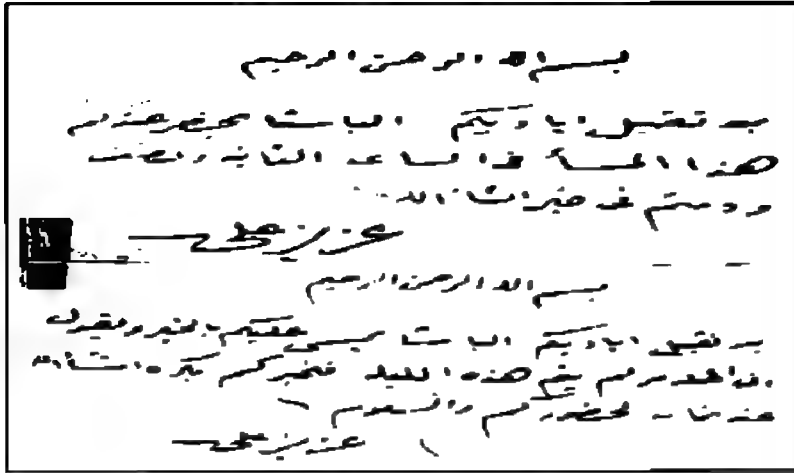 بسم الله الرحمن الرحيم
بعد تقبيل اياديكم الباشا يحضر عندكم
هذا المسأ في الساعه الثانيه والنصف
ودمتم في خير انشاالله
عزيز علي
بسم الله الرحمن الرحيم
بعد تقبيل اياديكم الباشا يمسي عليكم بالخير ويقول
يتم هذه الليله نخبركم بكره انشأالله
لحضوركم والسلام
عزيز علي